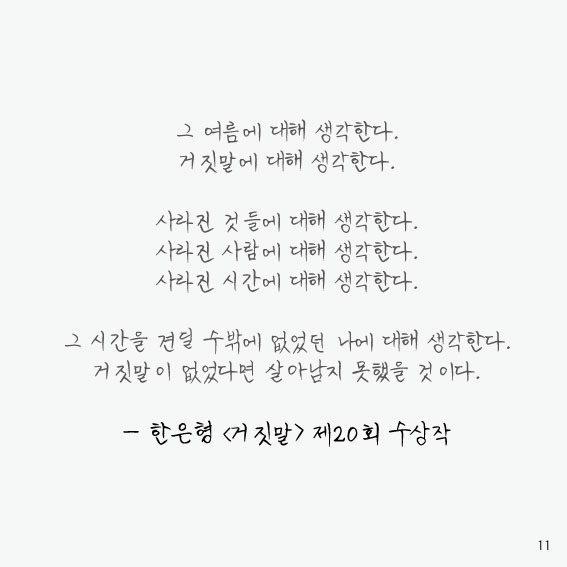 그 여름에 대해 생각한다.
거짓말에 대해 생각한다.
사라진 것들에 대해 생각한다.
사라진 사람에 대해 생각한다.
사라진 시간에 대해 생각한다.
그 시간을 견딜 수밖에 없었던 나에 대해 생각한다.
거짓말이 없었다면 살아남지 못했을 것이다.
- 한은형 <거짓말> 제20회 수상작
11